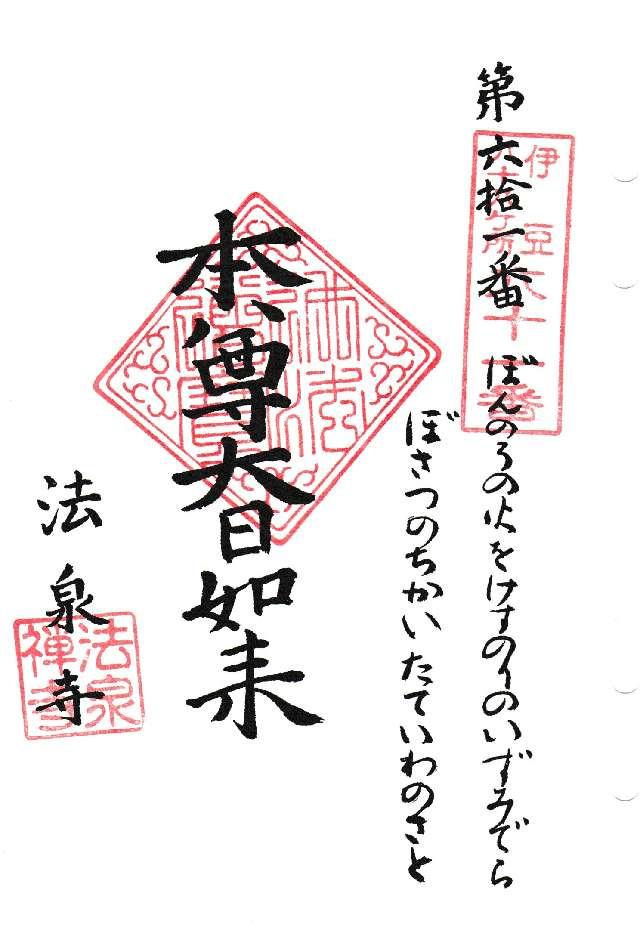 第六拾一番
伊豆
八十八ヶ所
六十一番
ぼんのうの火をけすのりのいずみでら
ぼさつのちかいたていわのさと
本尊大日如来
法泉寺
法泉
禅寺